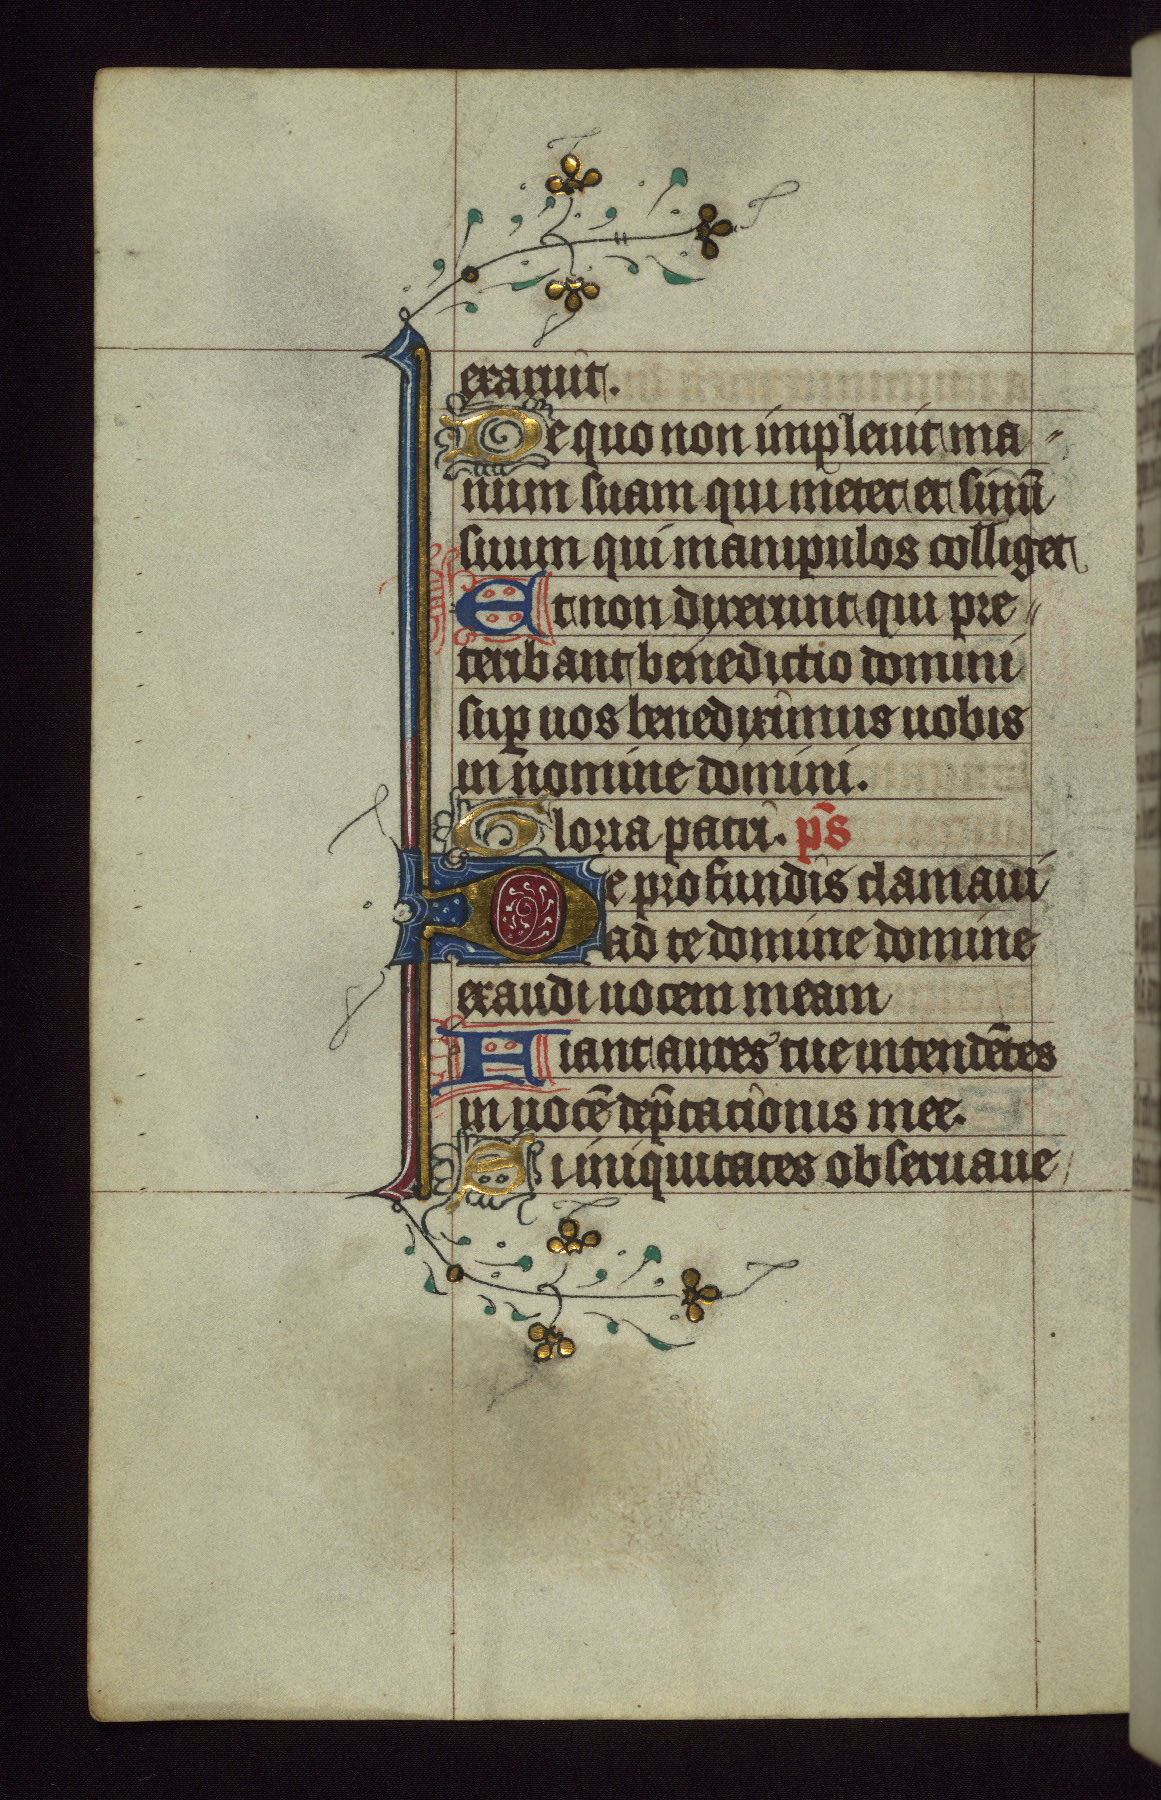 exaruit.
De quo non impleuit ma
num suam qui metet et sinū
suum qui manipulos colliget
Et non dixerunt qui pre
teribant benedictio domini
sup uos benediximus uobis
in nomine domini.
Gloria patri. p̄s
De profundis clamaui
ad te domine domine
exaudi uocem meam
Fiant aures tue intendētes
in uocē dep̄cationis mee.
Si iniquitates obseruaue